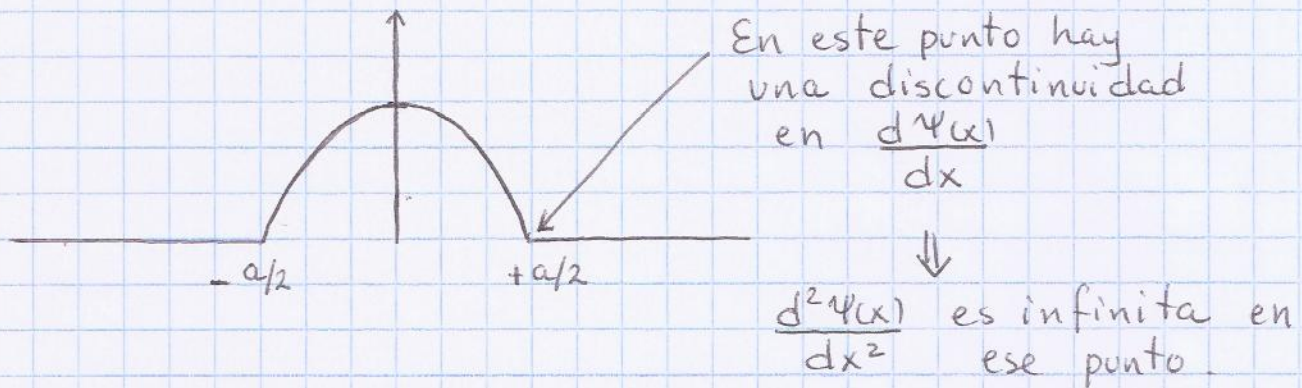 En este punto hay
una discontinuidad
en dΨ(x)/dx
⇓
- a/2
+a/2
d²Ψ(x)/dx² es infinita en
ese punto.